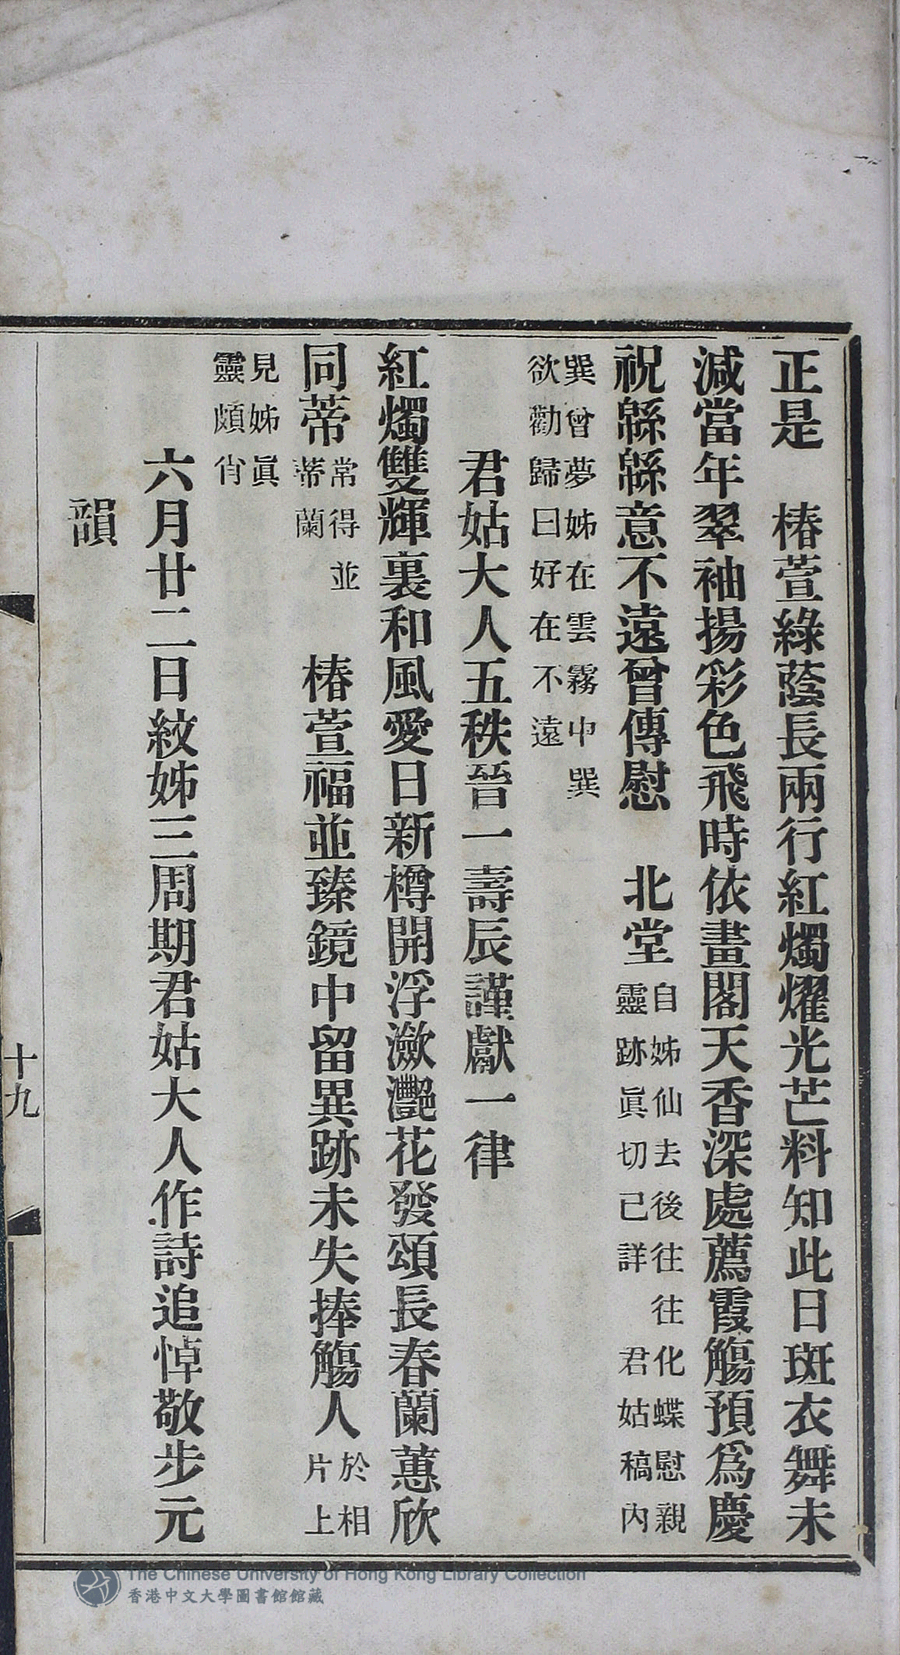 正是　椿萱綠蔭長兩行紅燭燿光芒料知此日斑衣舞未
減當年翠袖揚彩色飛時依畫閣天香深處薦霞觴預爲慶
祝緜緜意不遠曾傳慰　北堂自姊仙去後往往化蝶慰親
靈跡眞切已詳　君姑稿內
巽曾夢姊在雲霧中巽
欲勸歸曰好在不遠
君姑大人五秩晉一壽辰謹獻一律
紅燭雙輝裏和風愛日新樽開浮瀲灩花發頌長春蘭蕙欣
同蒂常得並
蒂蘭
椿萱福並臻鏡中留異跡未失捧觴人於相
片上
見姊眞
靈頗肖
六月廿二日紋姊三周期君姑大人作詩追悼敬步元
韻
十九
The Chinese University of Hong Kong Library Collection
香港中文大學圖書館館藏